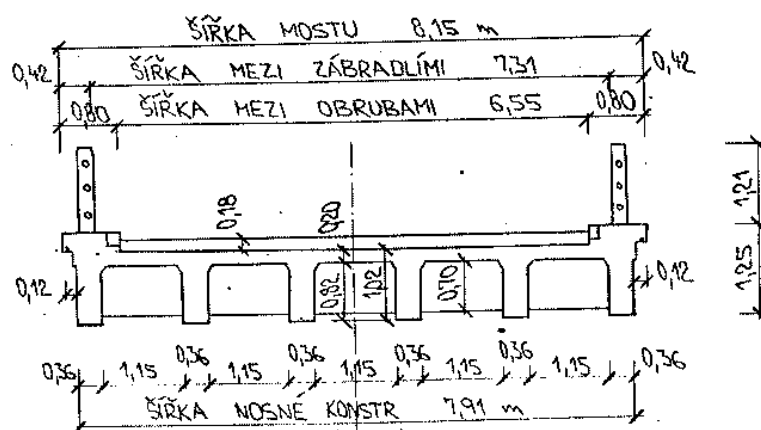 ŠÍŘKA MOSTU 8,15 m
0,42 ŠÍŘKA MEZI ZÁBRADLÍMI 7,31 0,42
0,80 ŠÍŘKA MEZI OBRUBAMI 6,55 0,80
0,18 0,20
1,21
0,12 0,82 1,02 0,70 0,12
1,25
0,36 1,15 0,36 1,15 0,36 1,15 0,36 1,15 0,36 1,15 0,36
ŠÍŘKA NOSNÉ KONSTR 7,91 m